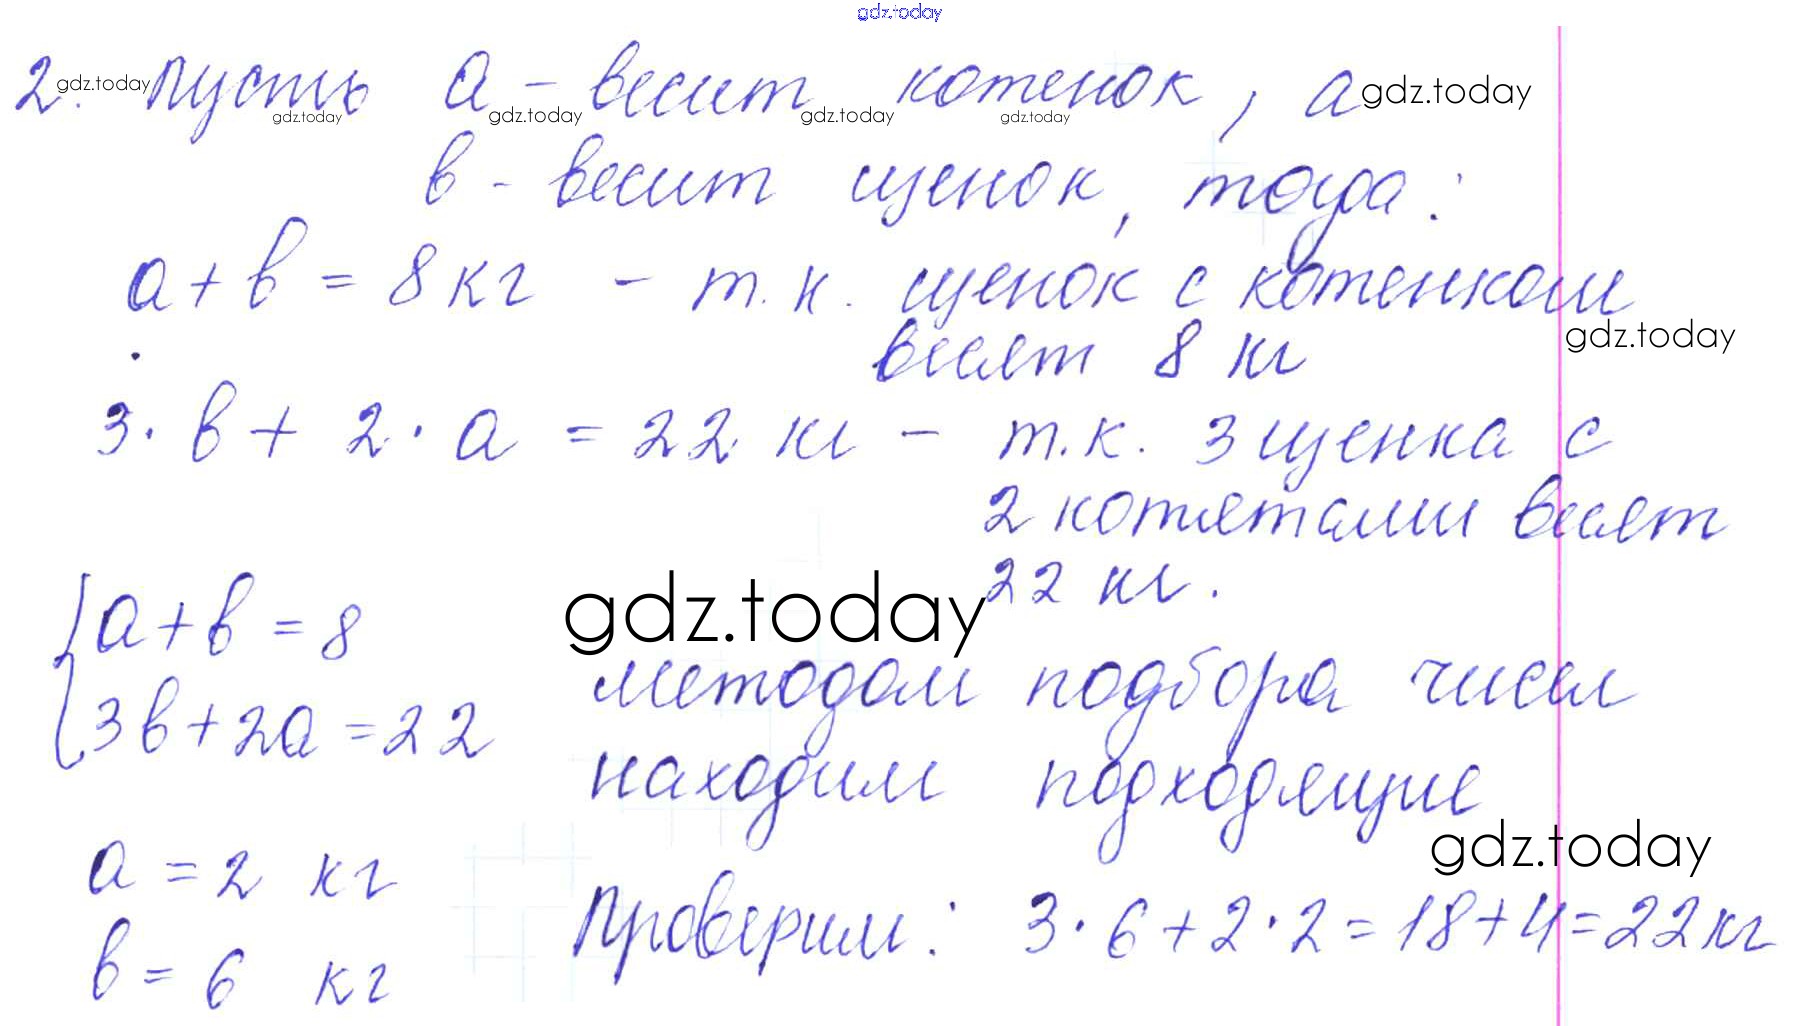 gdz.today
2. Пусть а - весит котенок, а
gdz.today gdz.today gdz.today gdz.today gdz.today gdz.today
в - весит щенок, тогда:
а + в = 8 кг - т.к. щенок с котенком
весят 8 кг
gdz.today
3 · в + 2 · а = 22 кг - т.к. 3 щенка с
2 котятами весят
22 кг.
gdz.today
а + в = 8
3в + 2а = 22
методом подбора чисел
находим подходящие
gdz.today
а = 2 кг
в = 6 кг
Проверим: 3 · 6 + 2 · 2 = 18 + 4 = 22 кг